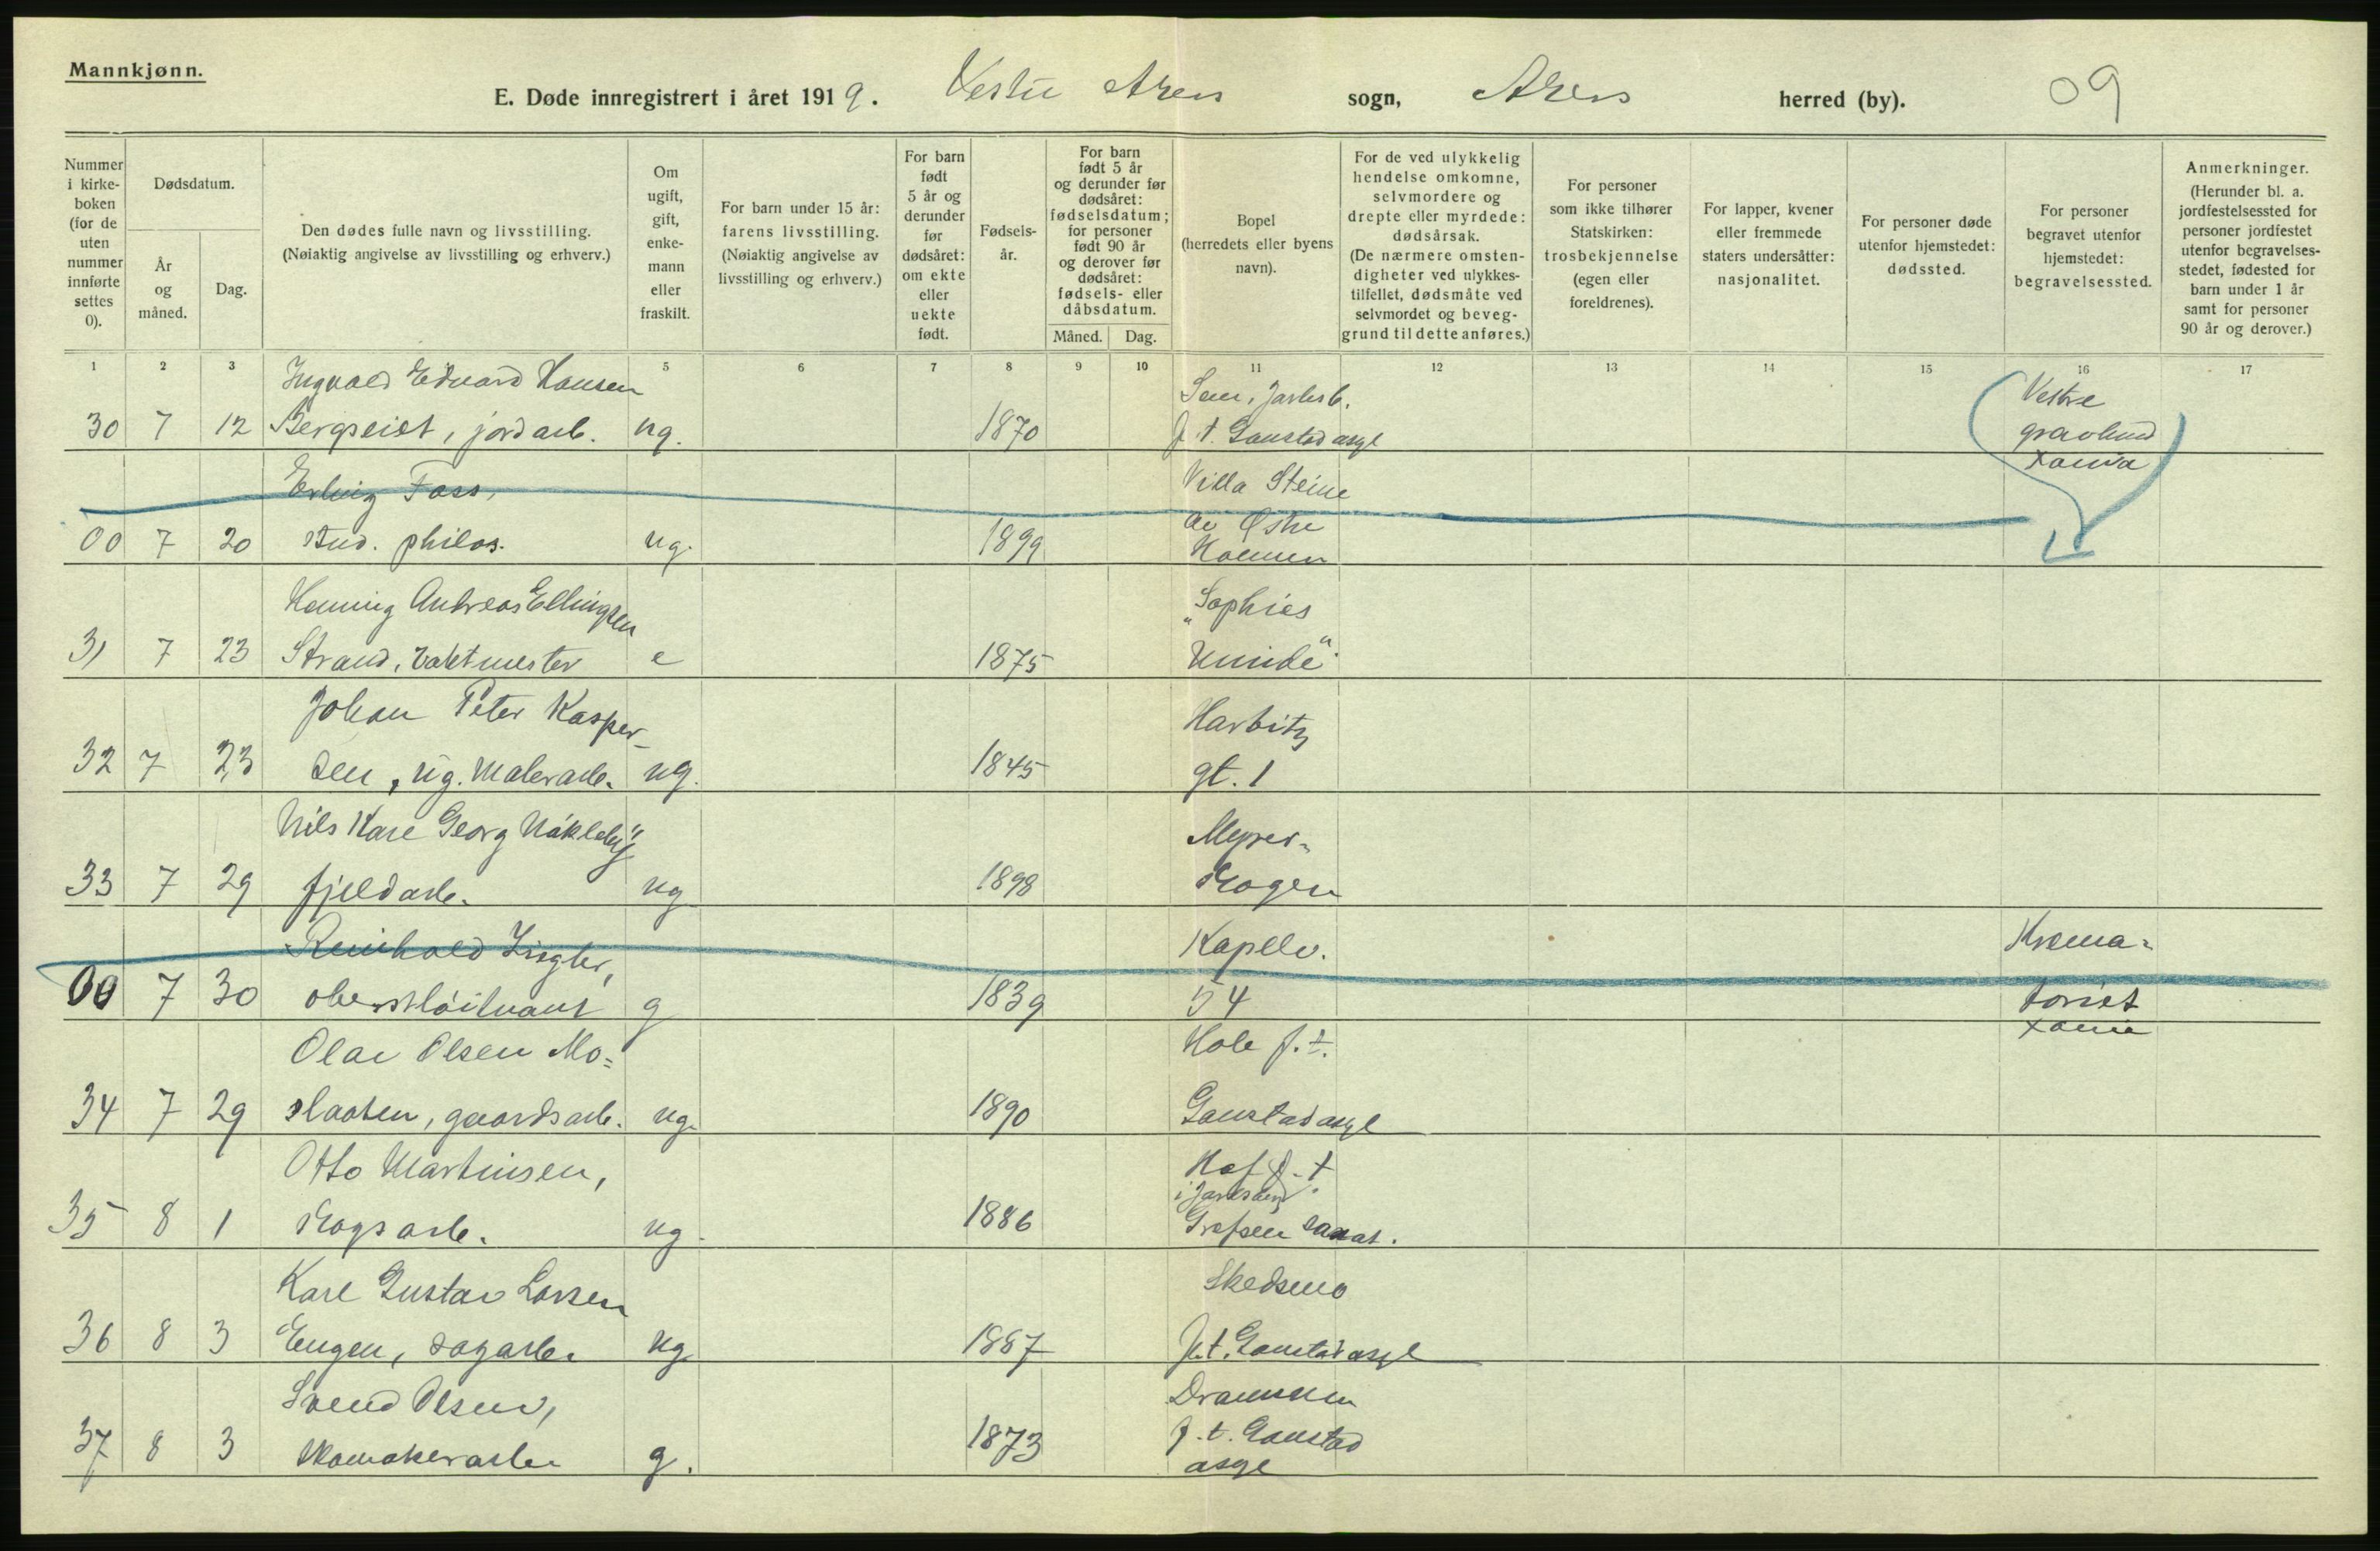 Mannkjønn.
E. Døde innregistrert i året 1919. Vestre Akers sogn, Akers herred (by). 09
Nummer i kirke-boken (for de uten nummer innførte settes 0).
Dødsdatum.
År og måned.
Dag.
Den dødes fulle navn og livsstilling. (Nøiaktig angivelse av livsstilling og erhverv.)
Om ugift, gift, enke-mann eller fraskilt.
For barn under 15 år: farens livsstilling. (Nøiaktig angivelse av livsstilling og erhverv.)
For barn født 5 år og derunder før dødsåret: om ekte eller uekte født.
Fødsels-år.
For barn født 5 år og derunder før dødsåret: fødselsdatum; for personer født 90 år og derover før dødsåret: fødsels- eller dåbsdatum.
Måned. Dag.
Bopel (herredets eller byens navn).
For de ved ulykkelig hendelse omkomne, selvmordere og drepte eller myrdede: dødsårsak. (De nærmere omsten-digheter ved ulykkes-tilfellet, dødsmåte ved selvmordet og beveg-grund til dette anføres.)
For personer som ikke tilhører Statskirken: trosbekjennelse (egen eller foreldrenes).
For lapper, kvener eller fremmede staters undersåtter: nasjonalitet.
For personer døde utenfor hjemstedet: dødssted.
For personer begravet utenfor hjemstedet: begravelsessted.
Anmerkninger. (Herunder bl. a. jordfestelsessted for personer jordfestet utenfor begravelses-stedet, fødested for barn under 1 år samt for personer 90 år og derover.)
1 2 3 5 6 7 8 9 10 11 12 13 14 15 16 17
Ingvald Edvard Hansen Sem, Jarlsb. Vestre
30 7 12 Bergseist, jordarb. ug. 1870 f. t. Gaustad asyl gravlund
Xania
Erling Foss, Villa Steine
00 7 20 stud. philos. ug. 1899 av Østre
Holmen
Henning Andreas Ellingsen "Sophies
31 7 23 Strand, vaktmester e 1875 Minde"
Johan Peter Kasper- Harbitz
32 7 23 sen, ug. Malerarb. ug. 1845 gt. 1
Nils Kare Georg Nakleby Meyer-
33 7 29 fjeldarb. ug 1898 skogen
Reinhold Ziegler, Kapelv. Krema-
00 7 30 oberstløitnant g 1839 54 toriet
Xania
Olav Olsen Mo- Hole f. t.
34 7 29 slaaten, gaardsarb. ug. 1890 Gaustad asyl
Otto Martinsen, Hof f. t
i Jarlsberg
35 8 1 skogsarb. ug. 1886 Grefsen sanat.
Karl Gustav Larsen Skedsmo
36 8 3 Engen, sagarb. ug 1887 f. t. Gaustad asyl
Svend Olsen, Drammen
37 8 3 skomakerarb. g. 1873 f. t. Gaustad
asyl